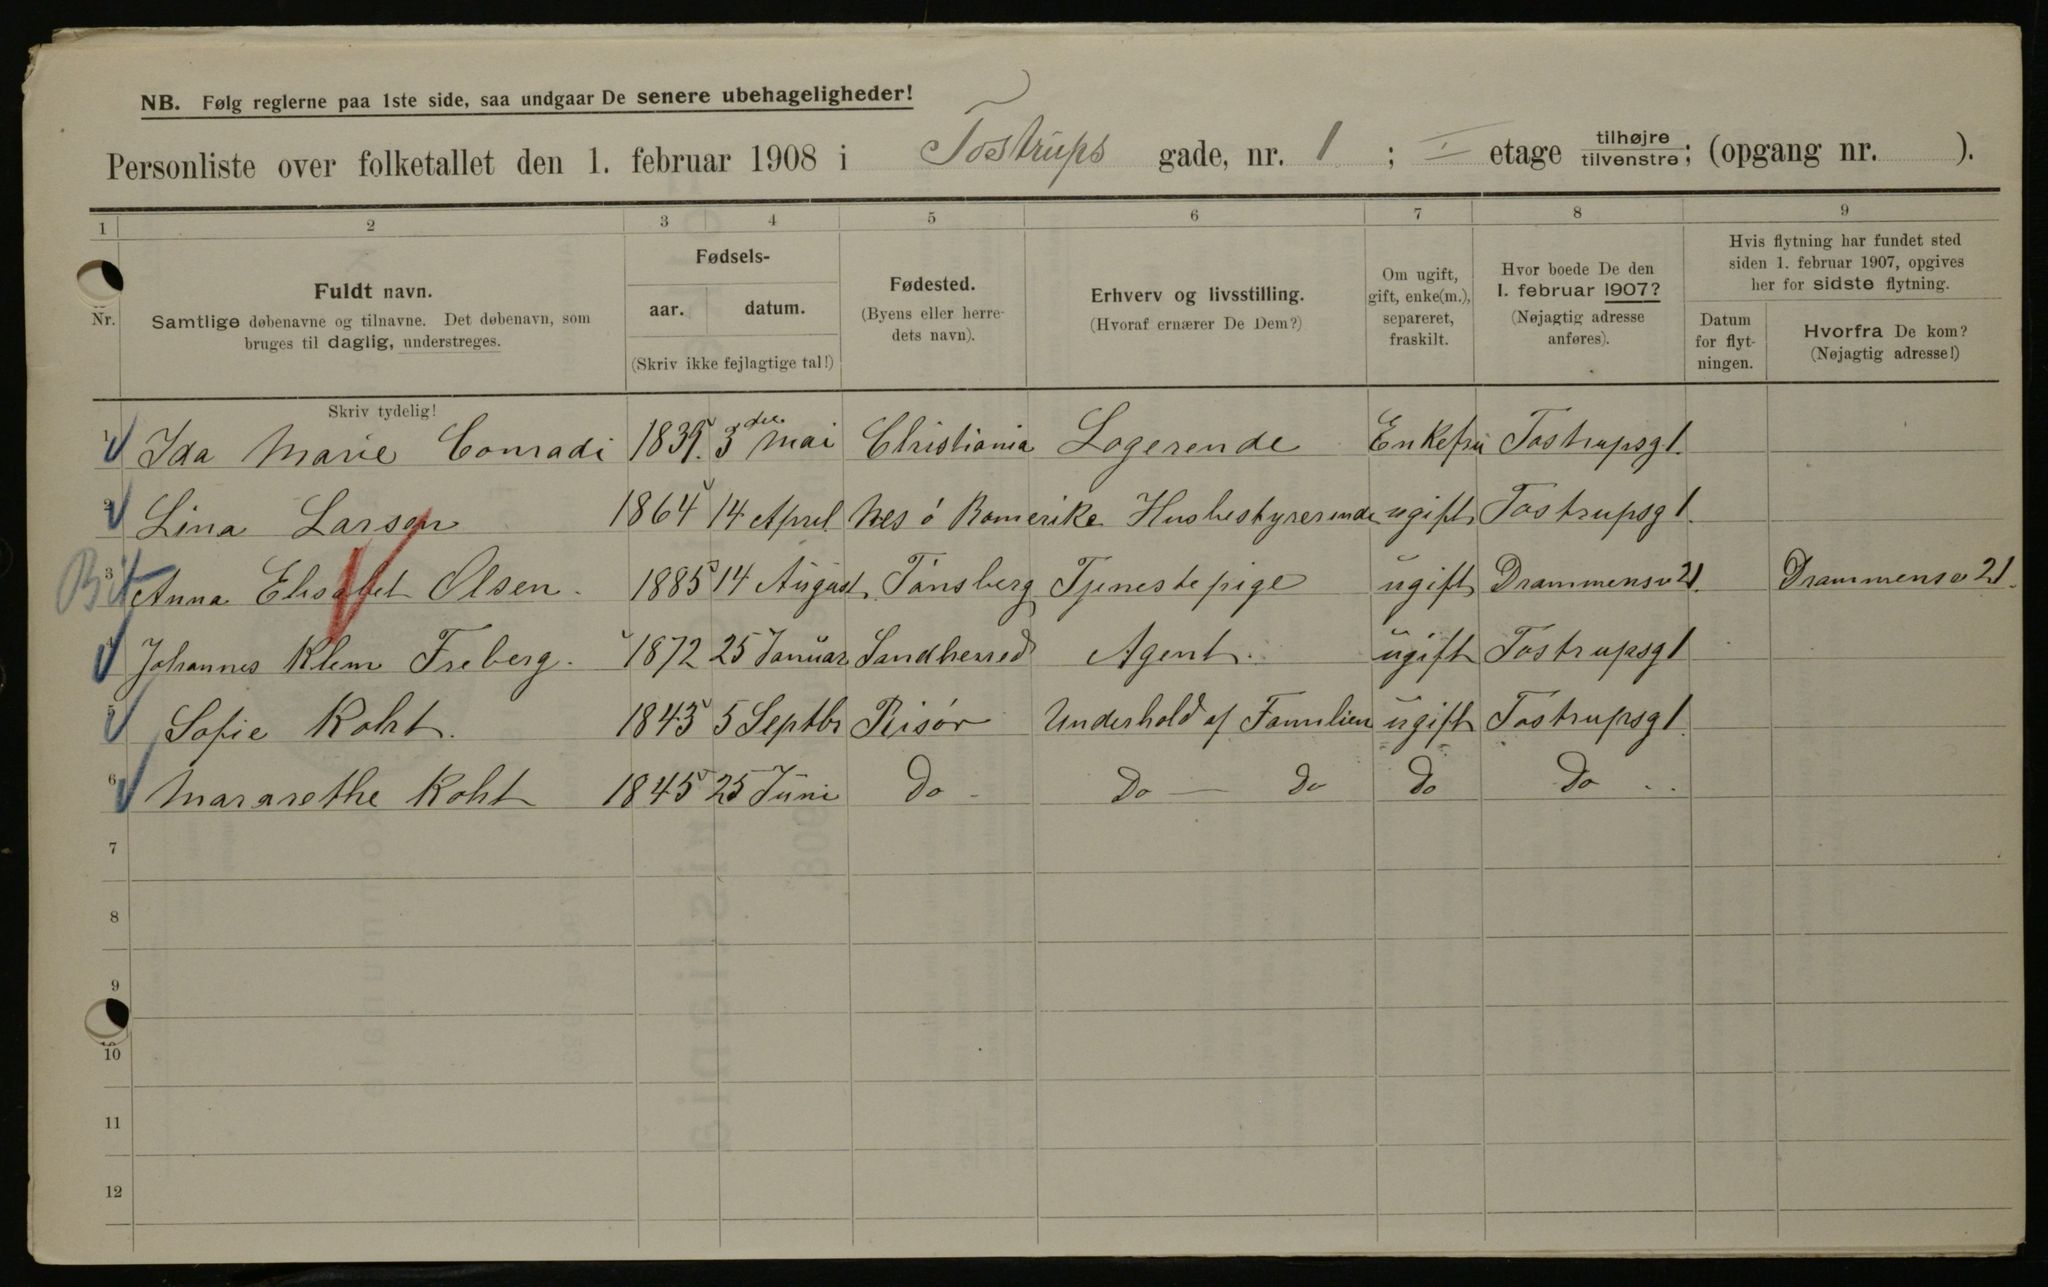 NB. Følg reglerne paa 1ste side, saa undgaar De senere ubehageligheder!
Personliste over folketallet den 1. februar 1908 i Tostrups gade, nr. 1 ; I etage tilhøjre tilvenstre; (opgang nr. ).
1 2 3 4 5 6 7 8 9
Nr.
Fuldt navn.
Samtlige døbenavne og tilnavne. Det døbenavn, som
bruges til daglig, understreges.
Skriv tydelig!
Fødsels-
aar. datum.
(Skriv ikke fejlagtige tal!)
Fødested.
(Byens eller herre-
dets navn).
Erhverv og livsstilling.
(Hvoraf ernærer De Dem?)
Om ugift,
gift, enke(m.),
separeret,
fraskilt.
Hvor boede De den
1. februar 1907?
(Nøjagtig adresse
anføres).
Hvis flytning har fundet sted
siden 1. februar 1907, opgives
her for sidste flytning.
Datum
for flyt-
ningen.
Hvorfra De kom?
(Nøjagtig adresse!)
1 Ida Marie Conradi 1839. 3 die Mai Christiania Logerende Enkefru Tostrupsgt 1.
2 Lina Larsen 1864 14 April Nes ó Romerike Husbestyrerende ugift Tostrupsg 1.
3 Anna Elisabet Olsen. 1885 14 August Tønsberg Tjenestepige ugift Drammensv 21. Drammensv 21.
4 Johannes Klem Freberg. 1872 25 Januar Sandherred Agent. ugift Tostrupsg 1
5 Sofie Koht. 1843 5 Septbr Risør Underhold af Familien ugift Tostrupsg 1.
6 Mararethe Koht 1845 25 Juni Do Do — Do Do Do
7
8
9
10
11
12